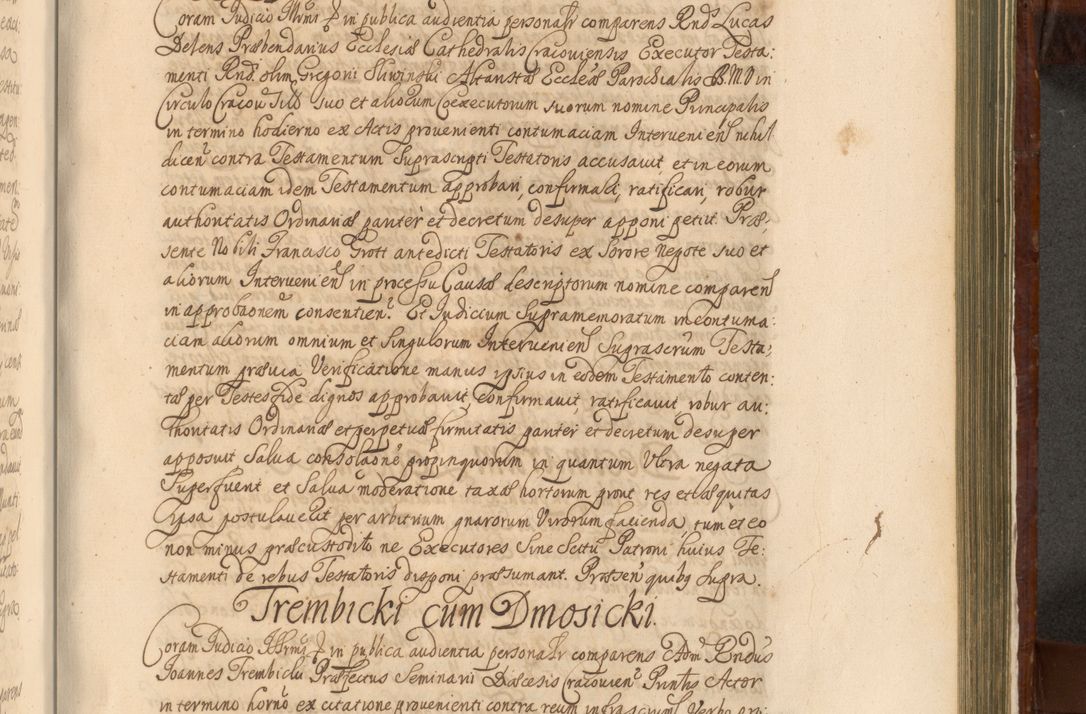 Coram Judicio Illrmi P in publica audientia personalr comparens Rnds Lucas
Delens Præbendarius Ecclesiæ Cathedralis Cracoviensis Executor Testa:
menti Rnd. olim Gregorii Sliwinski Altaristæ Ecclæ Parochialis B. M V in
Circulo Cracov Titlo suo et aliorum Coexecutorum suorum nomine Principalis
in termino hodierno ex Actis provenienti contumaciam Intervenien nihil
dicen contra Testamentum Suprascripti Testatoris accusavit et in eorum
contumaciam idem Testamentum approbari, confirmari, ratificari, robur
authoritatis Ordinariæ pariter et decretum desuper apponi petiit Præ,
sente Nobili Francisco Grott antedicti Testatoris ex Sorore Nepote suo et
aliorum Intervenien in processu Causæ descriptorum nomine comparen
in approbaonem consentien. Et Judicium Supramemoratum in contuma:
ciam aliorum omnium et Singulorum Intervenien Suprascrum Testa,
mentum prævia Verificatione manus ipsius in eodem Testamento conten:
tæ per Testes fide dignos approbavit, confirmavit, ratificavit robur au:
thoritatis Ordinariæ et perpetuæ firmitatis pariter et decretum desuper
apposuit Salva consolaone propinquorum in quantum Vltra negata
Superfuerit et Salva moderatione taxæ hortorum pront res et æquitas
ipsa postulaverit per arbitrium gnarorum Virorum facienda, tum et eo
non minus præcustodito ne Executores Sine Scitu Patroni huius Te:
stamenti de rebus Testatoris disponi præsumant. Præsen quibq Supra.
Trembicki cum Dmosicki.
Coram Judicio Illrmi P in publica audientia personalr comparens Adm Rndus
Joannes Trembicki Præfectus Seminarii Diæcesis Cracovien Printis Actor
in termino horno ex citatione provenienti contra reum infrascrium Verbo pri: